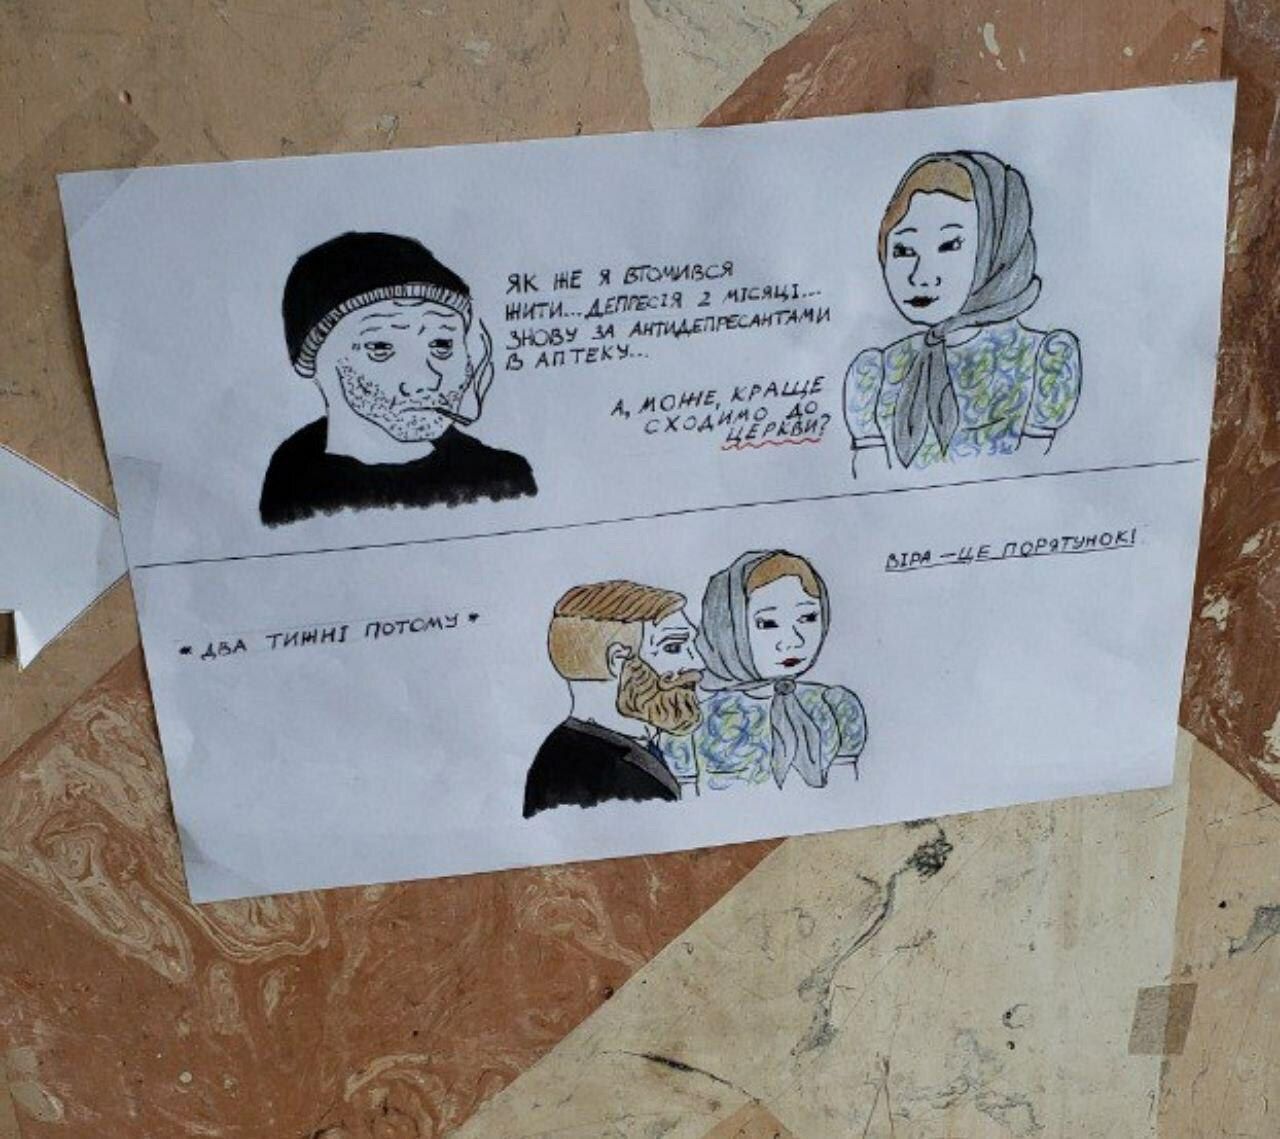 ЯК ЖЕ Я ВТОМИВСЯ
ЖИТИ... ДЕПРЕСІЯ 2 МІСЯЦІ...
ЗНОВУ ЗА АНТИДЕПРЕСАНТАМИ
В АПТЕКУ...
А, МОЖЕ, КРАЩЕ
СХОДИМО ДО
ЦЕРКВИ?
* ДВА ТИЖНІ ПОТОМУ *
ВІРА – ЦЕ ПОРЯТУНОК!